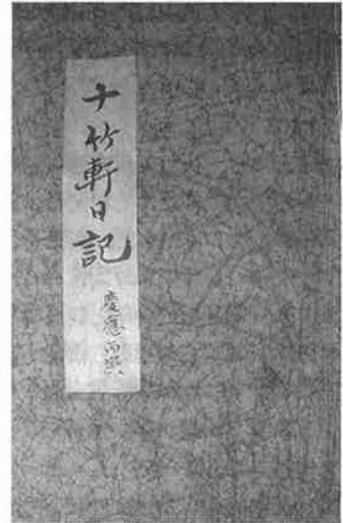 十竹軒日記
慶應丙寅